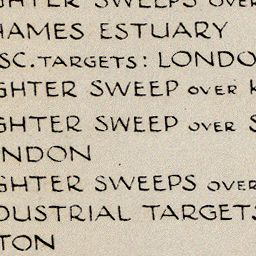 GHTER SWEEPS OVER
HAMES ESTUARY
SC. TARGETS: LONDO
GHTER SWEEP OVER
GHTER SWEEP OVER S
NDON
GHTER SWEEPS OVER
DUSTRIAL TARGETS
TON